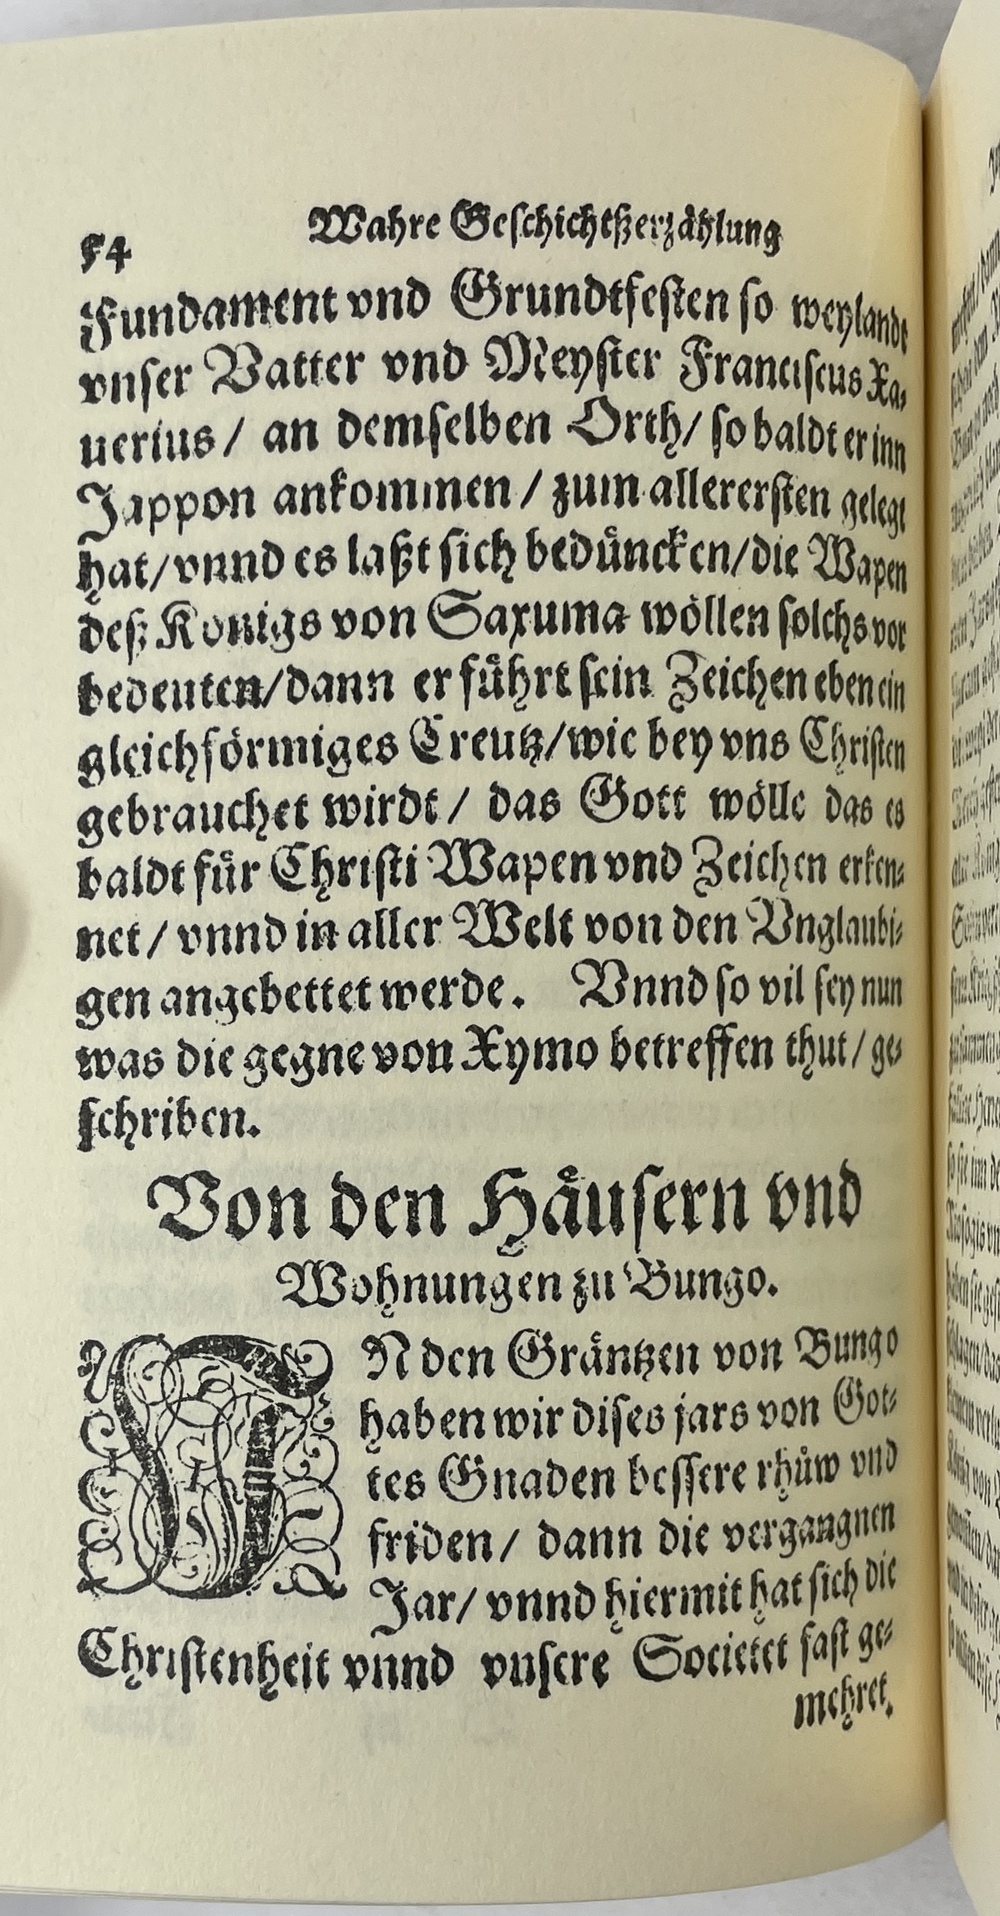 54
Wahre Geschichtßerzählung
Fundament vnd Grundtfesten so weylandt
vnser Vatter vnd Meyster Franciscus Xa-
uerius / an demselben Orth / so baldt er inn
Jappon ankommen / zum allerersten gelegt
hat / vnnd es laßt sich bedüncken / die Wapen
deß Königs von Saxuma wöllen solchs vor
bedeuten / dann er führt sein Zeichen eben ein
gleichförmiges Creutz / wie bey vns Christen
gebrauchet wirdt / das Gott wölle das es
baldt für Christi Wapen vnd Zeichen erken-
net / vnnd in aller Welt von den Vnglaubi-
gen angebettet werde. Vnnd so vil sey nun
was die gegne von Xymo betreffen thut / ge-
schriben.
Von den Häusern vnd
Wohnungen zu Bungo.
IN den Gräntzen von Bungo
haben wir dises jars von Got-
tes Gnaden bessere rhůw vnd
friden / dann die vergangnen
Jar / vnnd hiermit hat sich die
Christenheit vnnd vnsere Societet fast ge-
mehret.